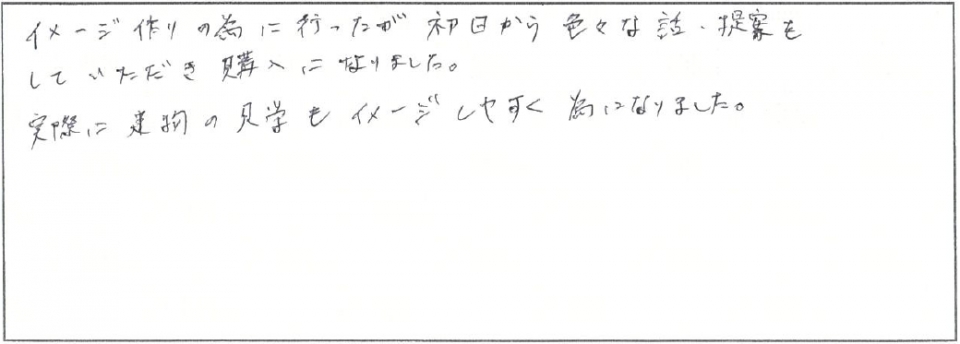 イメージ作りの為に行ったが初日から色々な話・提案も
していただき購入になりました。
実際に建物の見学もイメージしやすく為になりました。